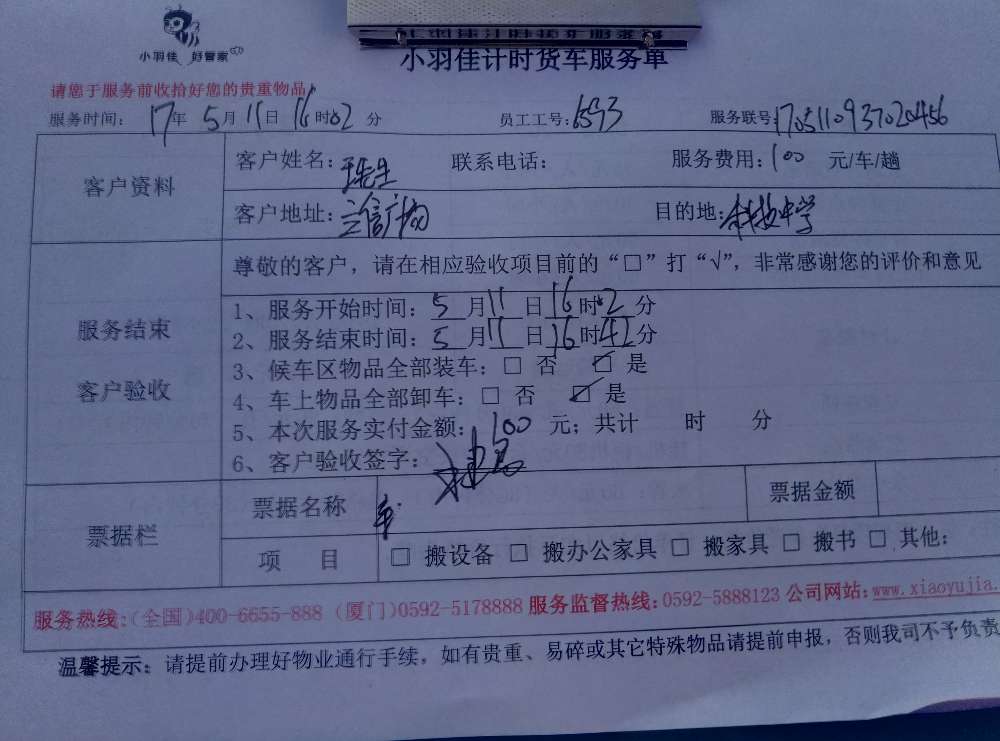 小羽佳 好管家
小羽佳计时货车服务单
请您于服务前收拾好您的贵重物品
服务时间： 17年 5月 11日 16时02分 员工工号：6593 服务联号：1705110937020456
客户资料
客户姓名： 联系电话： 服务费用：100 元/车/趟
客户地址：立信广场 目的地：科技中学
尊敬的客户，请在相应验收项目前的“□”打“√”，非常感谢您的评价和意见
服务结束
客户验收
1、服务开始时间：5月11日16时02分
2、服务结束时间：5月11日16时42分
3、候车区物品全部装车：□ 否 ☑ 是
4、车上物品全部卸车：□ 否 ☑ 是
5、本次服务实付金额：100 元；共计 时 分
6、客户验收签字：
票据栏
票据名称 票据金额
项 目 □ 搬设备 □ 搬办公家具 □ 搬家具 □ 搬书 □ 其他：
服务热线：（全国）400-6655-888 （厦门）0592-5178888 服务监督热线：0592-5888123 公司网站：www.xiaoyujia.
温馨提示：请提前办理好物业通行手续，如有贵重、易碎或其它特殊物品请提前申报，否则我司不予负责